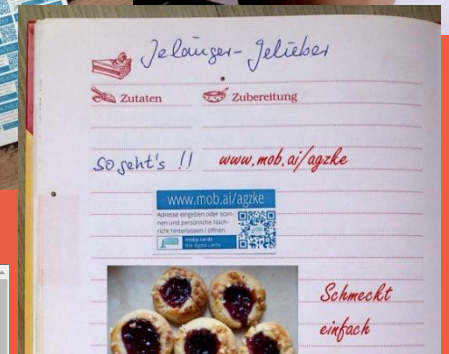 Jelänger-Jelieber
Zutaten
Zubereitung
so geht's !!
www.mob.ai/agzke
www.mob.ai/agzke
Adresse eingeben oder scan-
nen und persönliche Nach-
richt hinterlassen / öffnen.
moby cards
the digital cards
Schmeckt
einfach